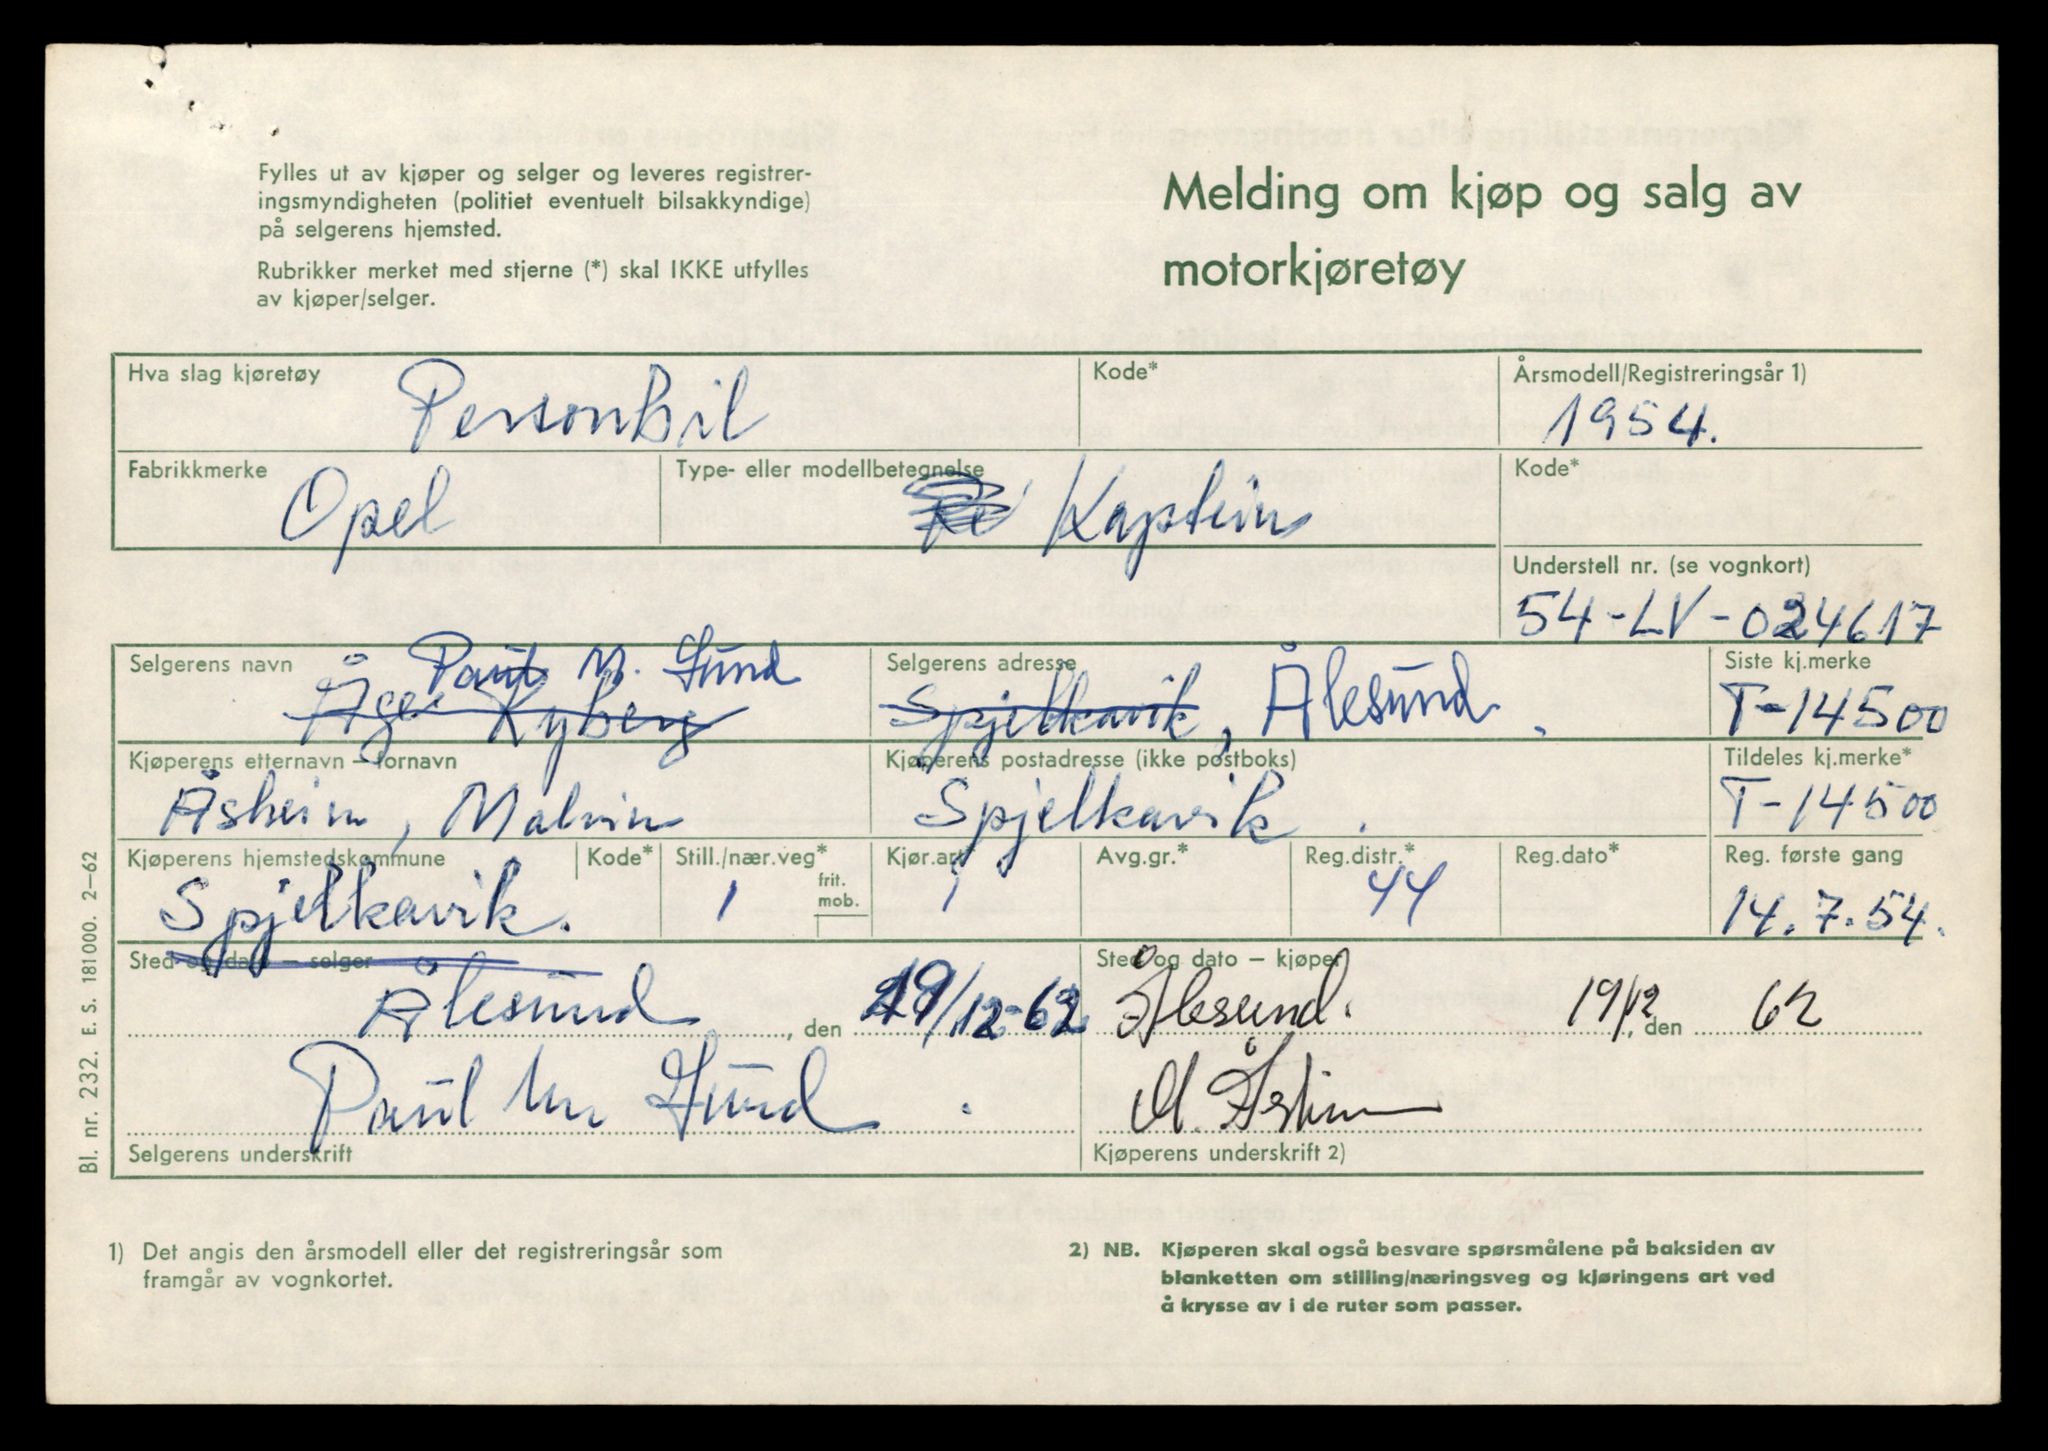 Fylles ut av kjøper og selger og leveres registrer-
ingsmyndigheten (politiet eventuelt bilsakkyndige)
på selgerens hjemsted.
Rubrikker merket med stjerne (*) skal IKKE utfylles
av kjøper/selger.
Melding om kjøp og salg av
motorkjøretøy
Hva slag kjøretøy
Personbil
Kode*
Årsmodell/Registreringsår 1)
1954.
Fabrikkmerke
Opel
Type- eller modellbetegnelse
Kaptein
Kode*
Understell nr. (se vognkort)
54-LV-024617
Selgerens navn
Paul M. Gund
Åge Nyberg
Selgerens adresse
Spjelkavik, Ålesund.
Siste kj.merke
T-14500
Kjøperens etternavn – fornavn
Åsheim, Malvin
Kjøperens postadresse (ikke postboks)
Spjelkavik.
Tildeles kj.merke*
T-14500
Kjøperens hjemstedskommune
Spjelkavik.
Kode*
Still./nær.veg*
1
frit.
mob.
Kjør.art*
1
Avg.gr.*
Reg.distr.*
44
Reg.dato*
Reg. første gang
14.7.54.
Sted og dato – selger
Ålesund, den 19/12-62
Sted og dato – kjøper
Ålesund. 19/12, den 62
Paul M. Gund.
Selgerens underskrift
M. Åsheim
Kjøperens underskrift 2)
Bl. nr. 232. E. S. 181000. 2–62
1) Det angis den årsmodell eller det registreringsår som
framgår av vognkortet.
2) NB. Kjøperen skal også besvare spørsmålene på baksiden av
blanketten om stilling/næringsveg og kjøringens art ved
å krysse av i de ruter som passer.